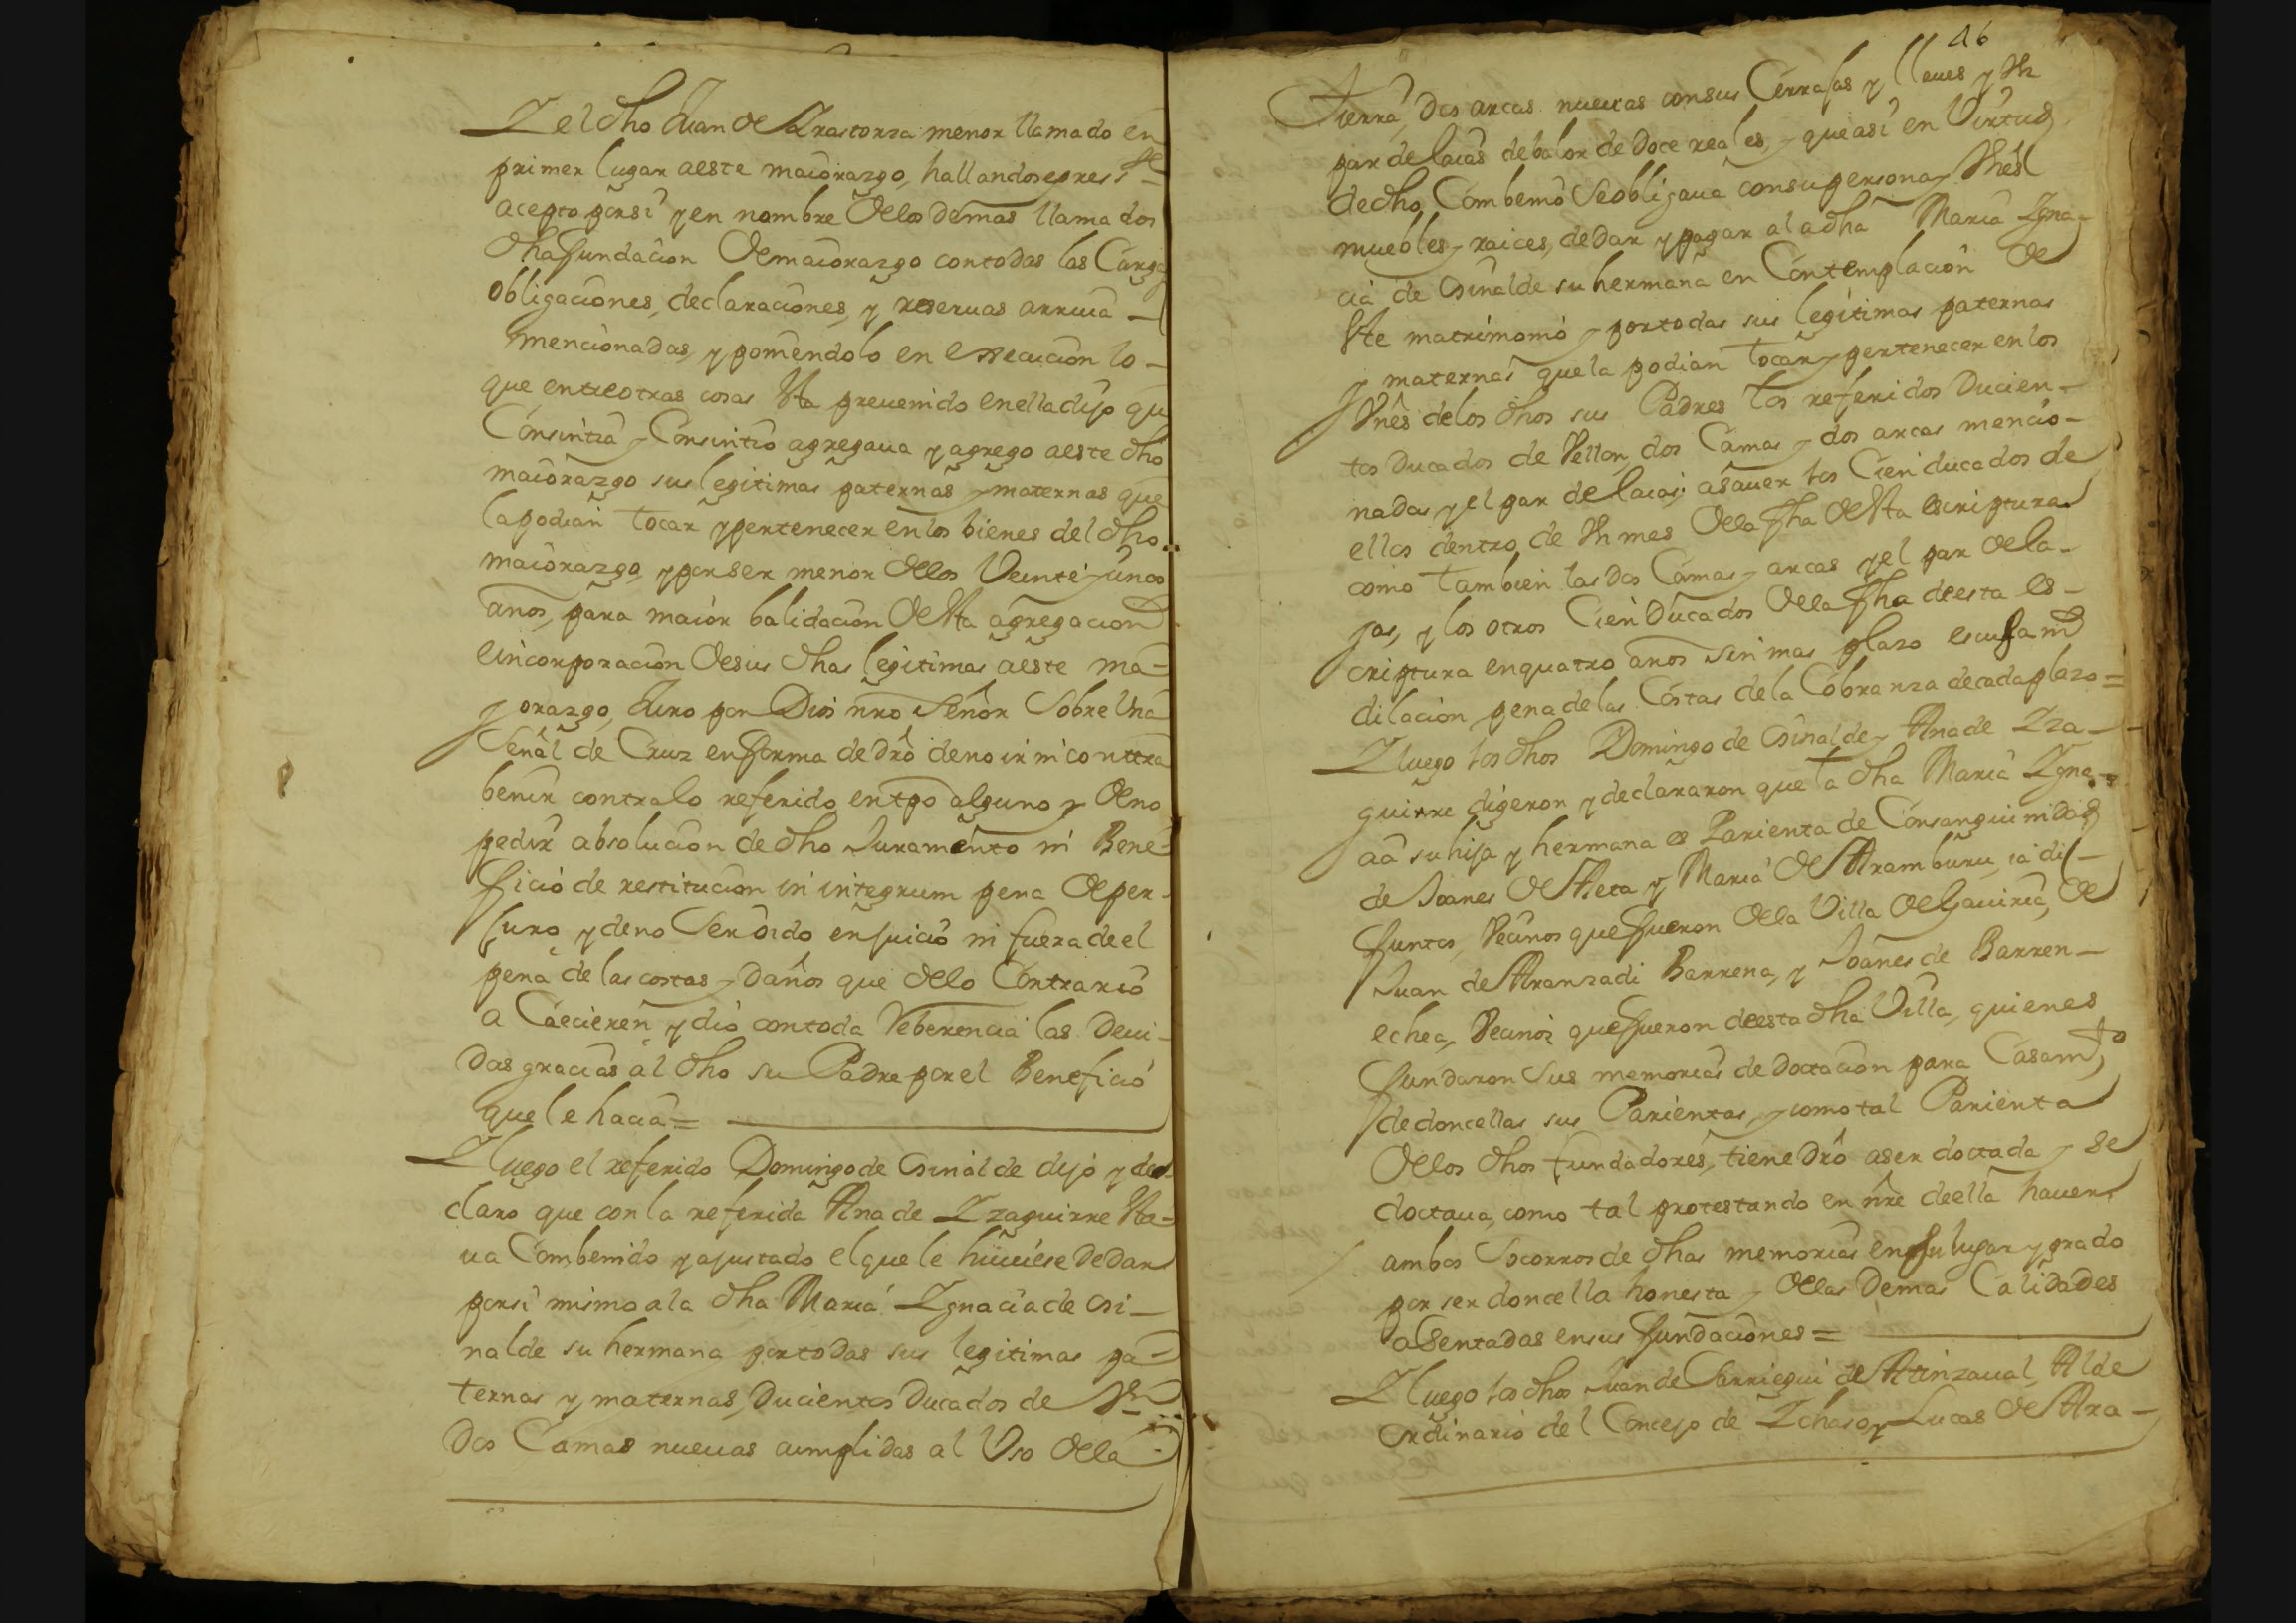 Y el dho Juan de Arrastorza menor llamado en
primer lugar a este maiorazgo, hallandose pres.te
acepto por si y en nombre de los demas llamados
dha fundacion de maiorazgo con todas las Carga
obligaciones, declaraciones, y reseruas arriua
mencionadas, y poniendolo en execucion lo
que entre otras cosas sta preuenido en ella dijo qu
Consintia y Consintio agregaua y agrego a este dho
maiorazgo sus legitimas paternas y maternas que
la podian tocar y pertenecer en los bienes del dho
maiorazgo, y por ser menor de los Veinte y cinco
anos, para maior balidacion de sta agregacion
e incorporacion de sus dhas legitimas a este ma-
jorazgo, Juro por Dios nro Señor Sobre Una
Señal de Cruz en forma de dro de no ir ni contra
benir contra lo referido en tpo alguno y de no
pedir absolucion de dho Juramento ni Bene-
ficio de restitucion in integrum pena de per-
juro y de no Ser oido en juicio ni fuera de el
pena de las costas y daños que de lo Contrario
a Caecieren y dio con toda Reberencia las Deui-
das gracias al dho su Padre por el Beneficio
que le hacia =
Y luego el referido Domingo de Osinalde dijo y de-
claro que con la referida Ana de Yzaguirre sta-
ua Combenido y ajustado el que le huuiese de dar
por si mismo a la dha Maria Ygnacia de Osi-
nalde su hermana por todas sus legitimas pa-
ternas y maternas, Ducientos Ducados de Vn
Dos Camas nueuas cumplidas al Uso de la
46
Tierra, Dos arcas nueuas con sus Cerrajas y llaues y Un
par de lacas de balor de Doce reales, y que asi en Virtud
de dho Combenio Se obligaua con su persona y Vnes
muebles y raices, de Dar y pagar a la dha Maria Ygna-
cia de Osinalde su hermana en Contemplacion de
ste matrimonio y por todas sus legitimas paternas
y maternas que la podian tocar y pertenecer en los
Vnes de los dhos sus Padres los referidos Ducien-
tos Ducados de Vellon, dos Camas y dos arcas mencio-
nadas, y el par de lacas; a sauer los Cien ducados de
ellos dentro de Un mes de la fha de sta escriptura
como tambien las dos Camas y arcas y el par de la-
jas, y los otros Cien Ducados de la fha de esta es-
criptura en quatro anos sin mas plazo escusa ni
dilacion pena de las Costas de la Cobranza de cada plazo =
Y luego los dhos Domingo de Osinalde y Ana de Yza-
guirre digeron y declararon que la dha Maria Ygna-
cia su hija y hermana es Parienta de Consanguinidad
de Joanes de Aeta y Maria de Aramburu, ia di-
funtos, Vecinos que fueron de la Villa de Gauiria, de
Juan de Aranzadi Barrena, y Joanes de Barren-
echea, Vecinos que fueron de esta dha Villa, quienes
fundaron Sus memorias de doctacion para Casam.to
de doncellas sus Parientas, y como tal Parienta
de los dhos fundadores, tiene dro a ser doctada y se
doctaua, como tal protestando en nre de ella hauer
ambos Socorros de dhas memorias en su lugar y grado
por ser doncella honesta y de las Demas Calidades
asentadas en sus fundaciones =
Y luego los dhos Juan de Sarriegui de Atinzaual, Alde
ordinario del Concejo de Ychaso y Lucas de Ara-